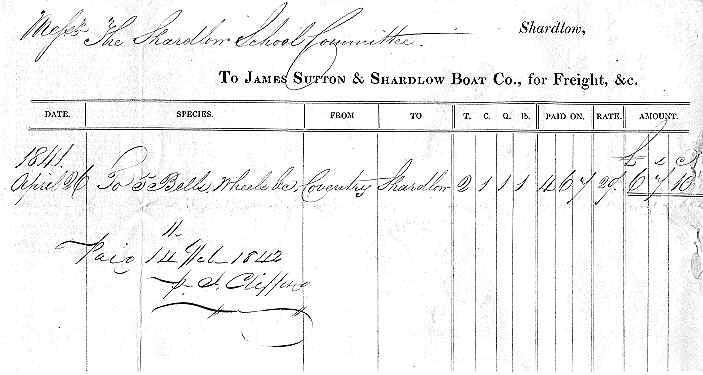 Messrs The Shardlow School Committee.
Shardlow,
To James Sutton & Shardlow Boat Co., for Freight, &c.
DATE. SPECIES. FROM TO T. C. Q. lb. PAID ON. RATE. AMOUNT.
1841. £ s d
April 26 To 5 Bells, Wheels &c, Coventry Shardlow 2 1 1 1 4 6 7 20/ 6 7 10
Paid 14 Feb 1842
p.